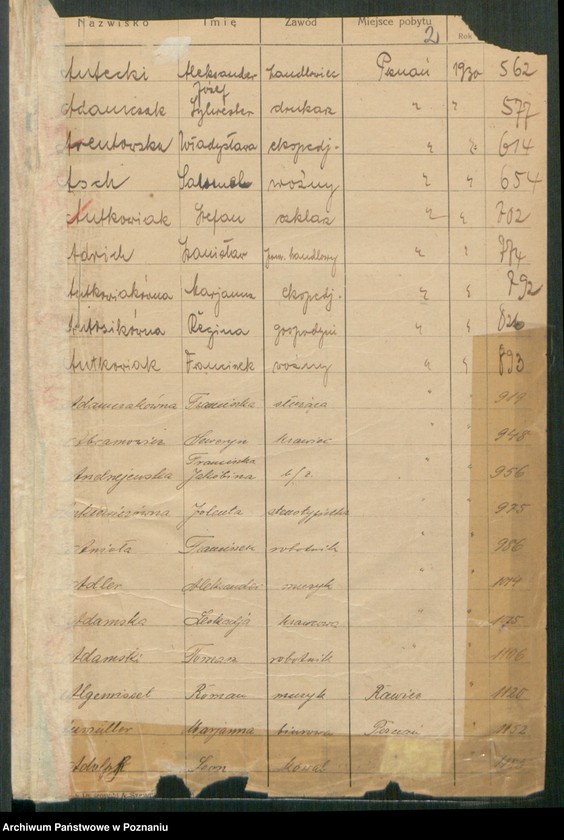 Nazwisko Imię Zawód Miejsce pobytu Rok
2
Autecki Aleksander handlowiec Poznań 1930 562
Józef
Adamczak Sylwester drukarz " " 577
Arentowska Władysława ekspedj. " " 614
Asch woźny " " 654
Antkowiak Stefan szklarz " " 702
Adrich Stanisław handlowy " " 774
Antkowiakówna Marjanna ekspedj. " " 792
Antosikówna Regina gospodyni " " 826
Antkowiak Franciszek woźny " " 893
Adamczakówna Franciszka służąca " 919
Abramowicz Seweryn krawiec " 948
Franciszka
Andrzejewska Jakóbina b/z. " 956
Jolenta stenotypistka " 975
Anioła Franciszek robotnik " 986
Adler Aleksander muzyk "
Adamska Leokadja krawcowa "
Adamski Tomasz robotnik " 1106
Roman muzyk Rawicz 1120
Marjanna biurowa Poznań 1152
Adolph Leon
Archiwum Państwowe w Poznaniu